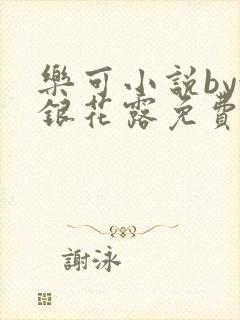 樂可小說by
銀花露免費
謝泳